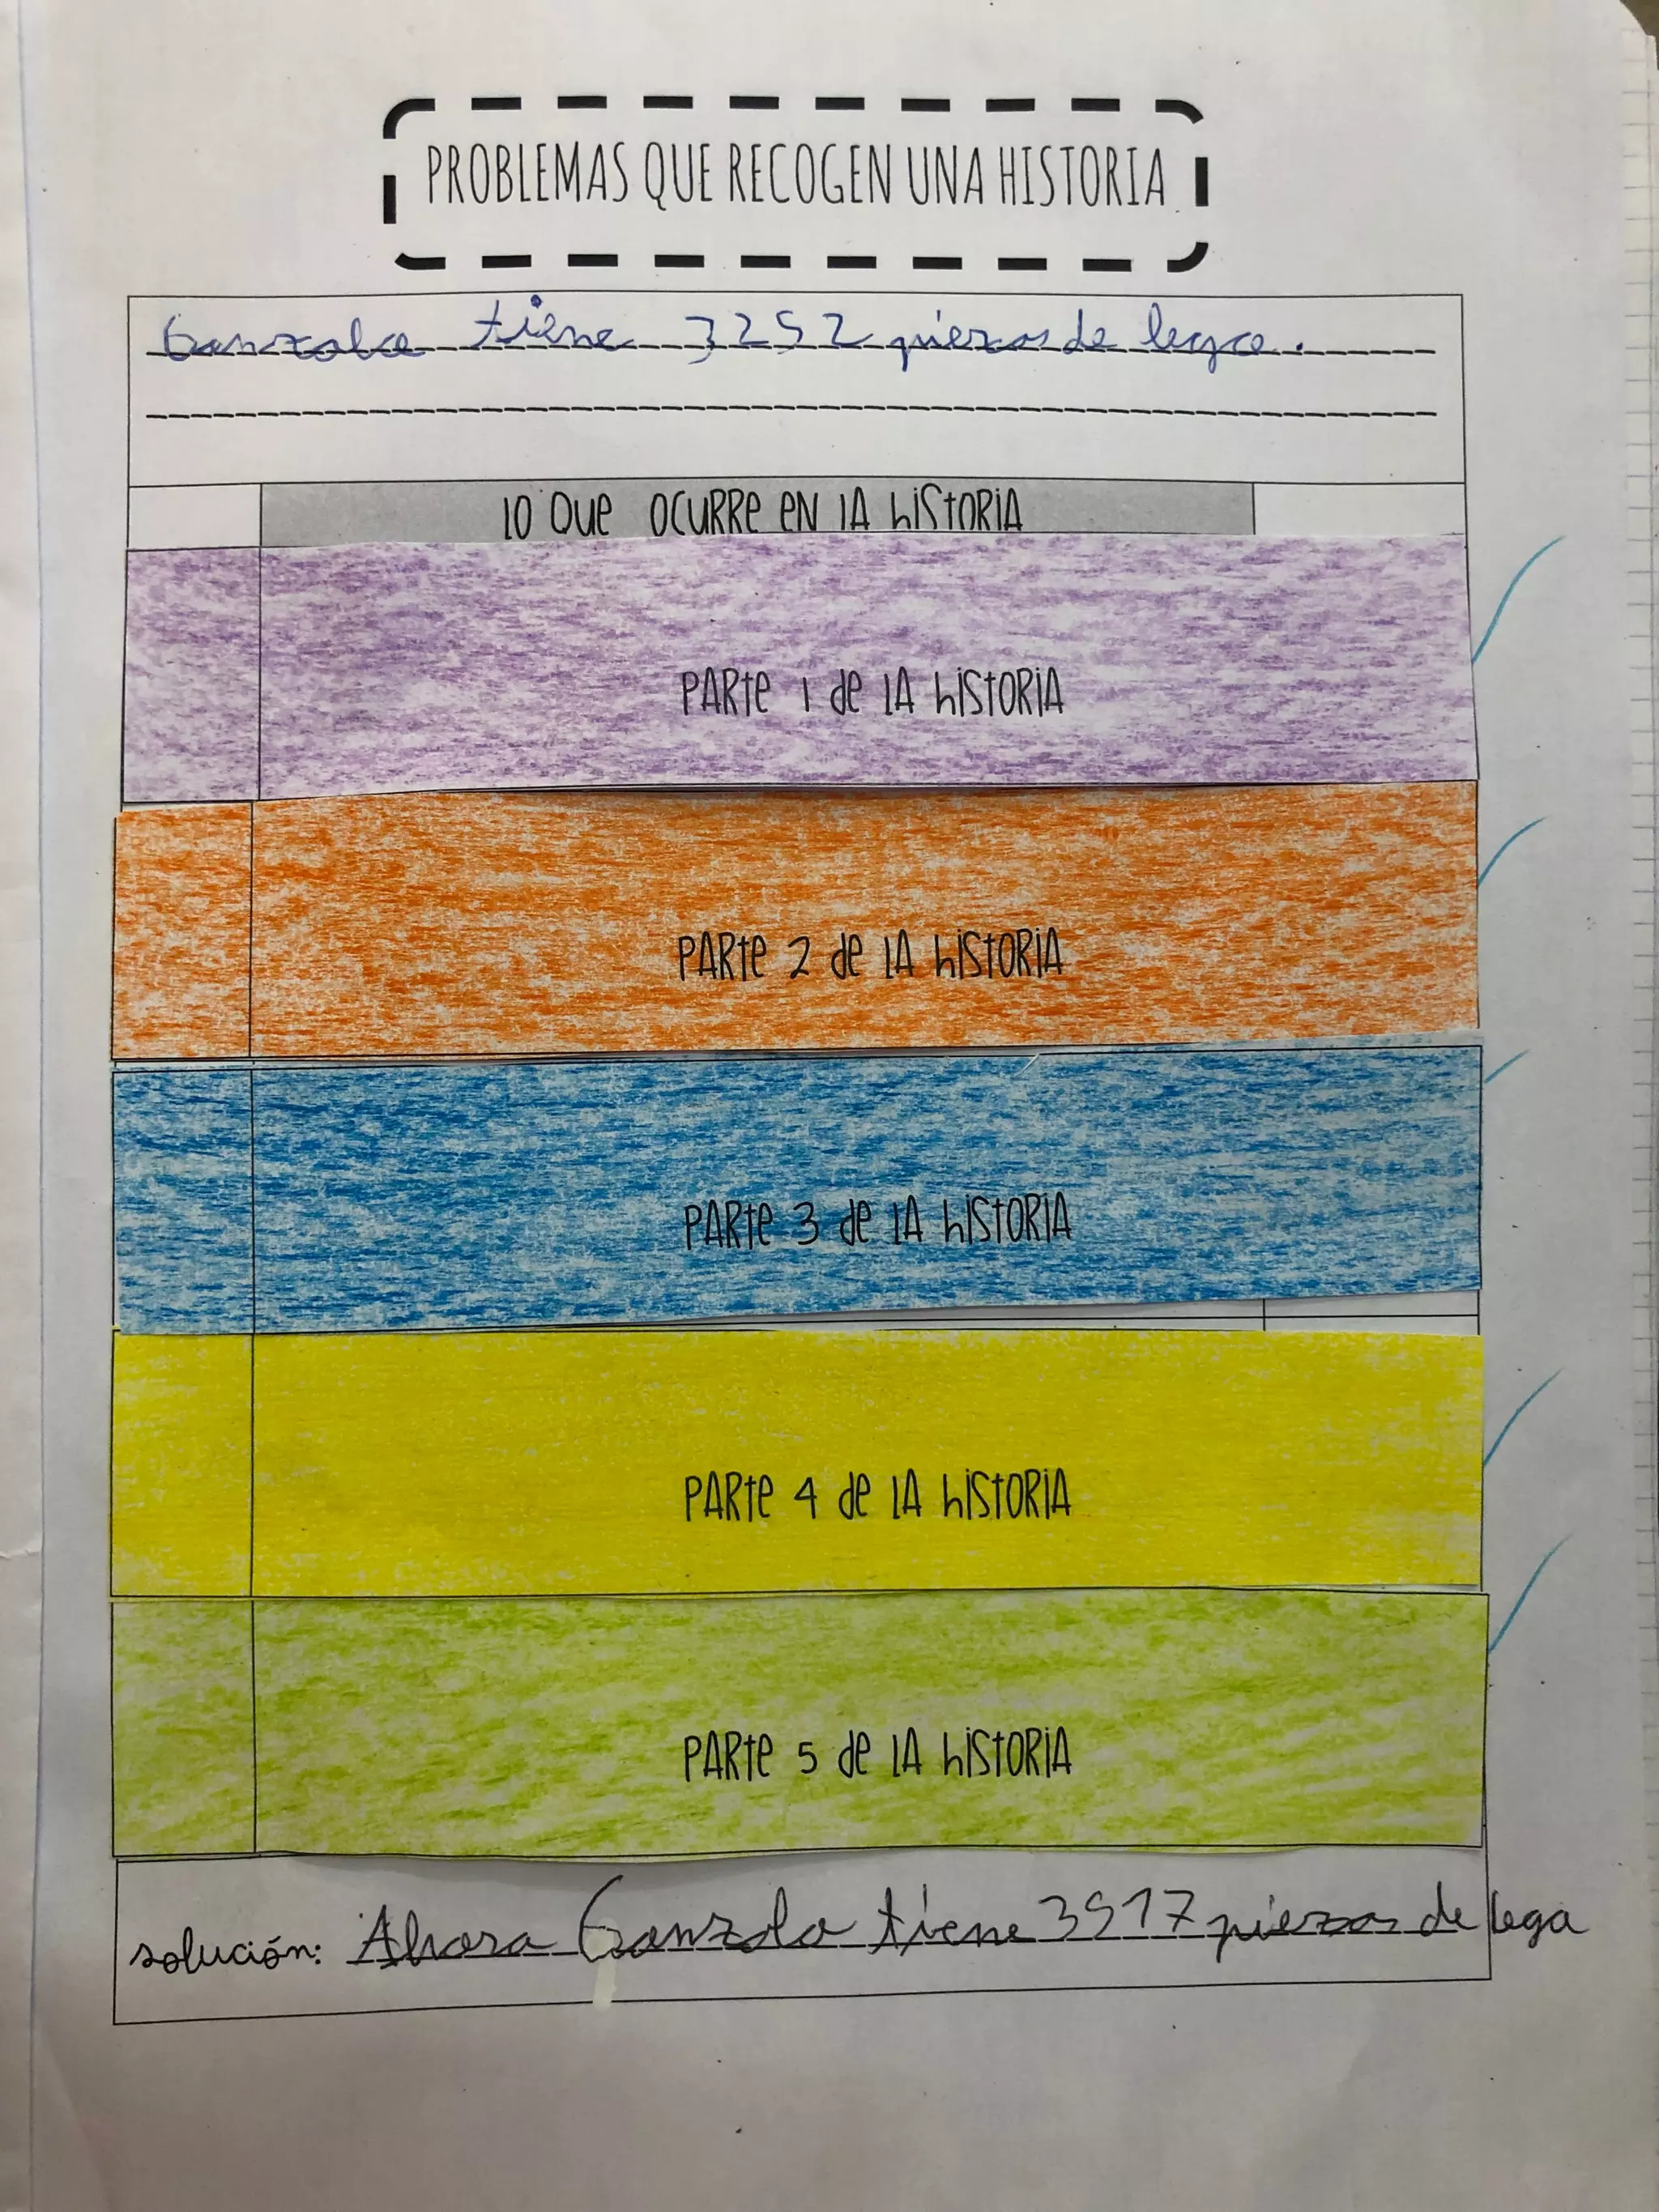 PROBLEMAS QUE RECOGEN UNA HISTORIA
Gonzalo tiene 3252 piezas de lego.
lo que ocurre en la historia
Parte 1 de la historia
Parte 2 de la historia
Parte 3 de la historia
Parte 4 de la historia
Parte 5 de la historia
solución: Ahora Gonzalo tiene 3917 piezas de lego